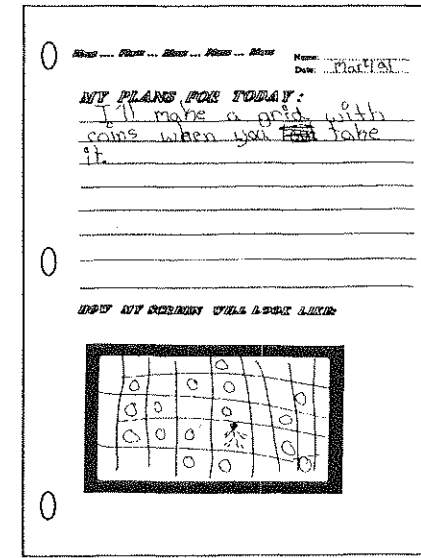 Plans ... Plans ... Plans ... Plans ... Plans
Name:
Date: Mar 4/91
MY PLANS FOR TODAY:
I'll make a grid, with
coins when you take
it.
HOW MY SCREEN WILL LOOK LIKE: